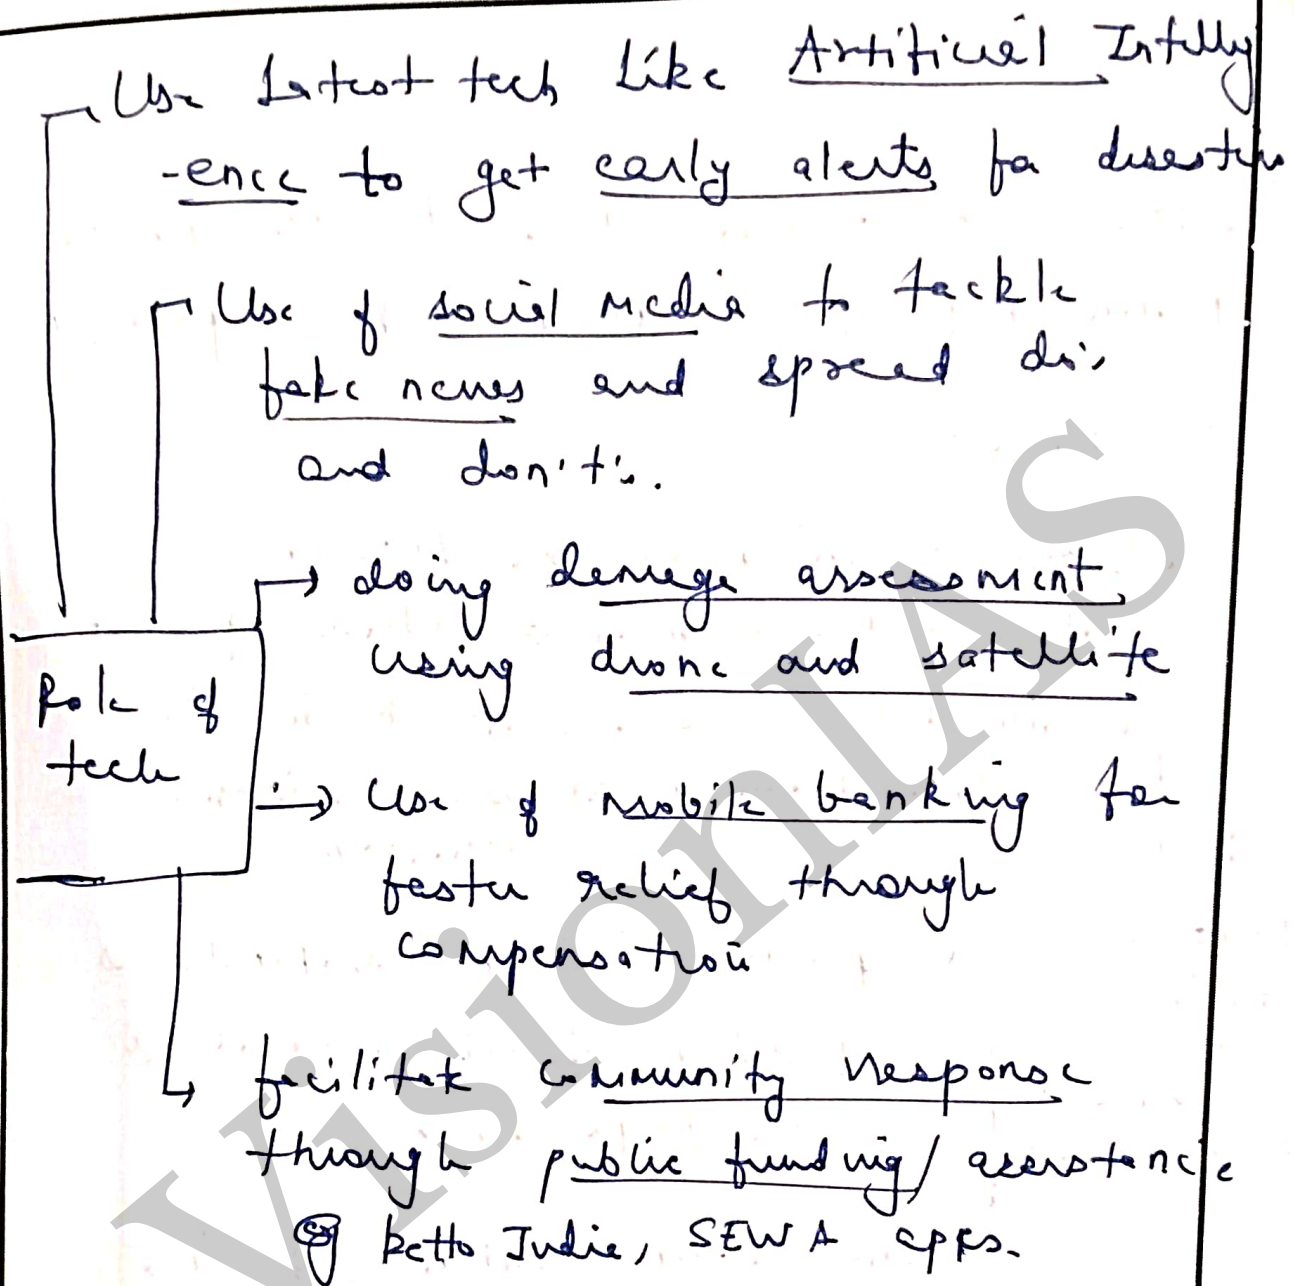 Use Latest tech Like Artificial Intellig
-ence to get early alerts for disasters
Use of social media to tackle
fake news and spread do's
and don't's.
→ doing damage assessment
using drone and satellite
Role of
tech
→ Use of mobile banking for
faster relief through
compensation
facilitate community response
through public funding/assistance
eg Ketto India, SEWA apps.
VisionIAS